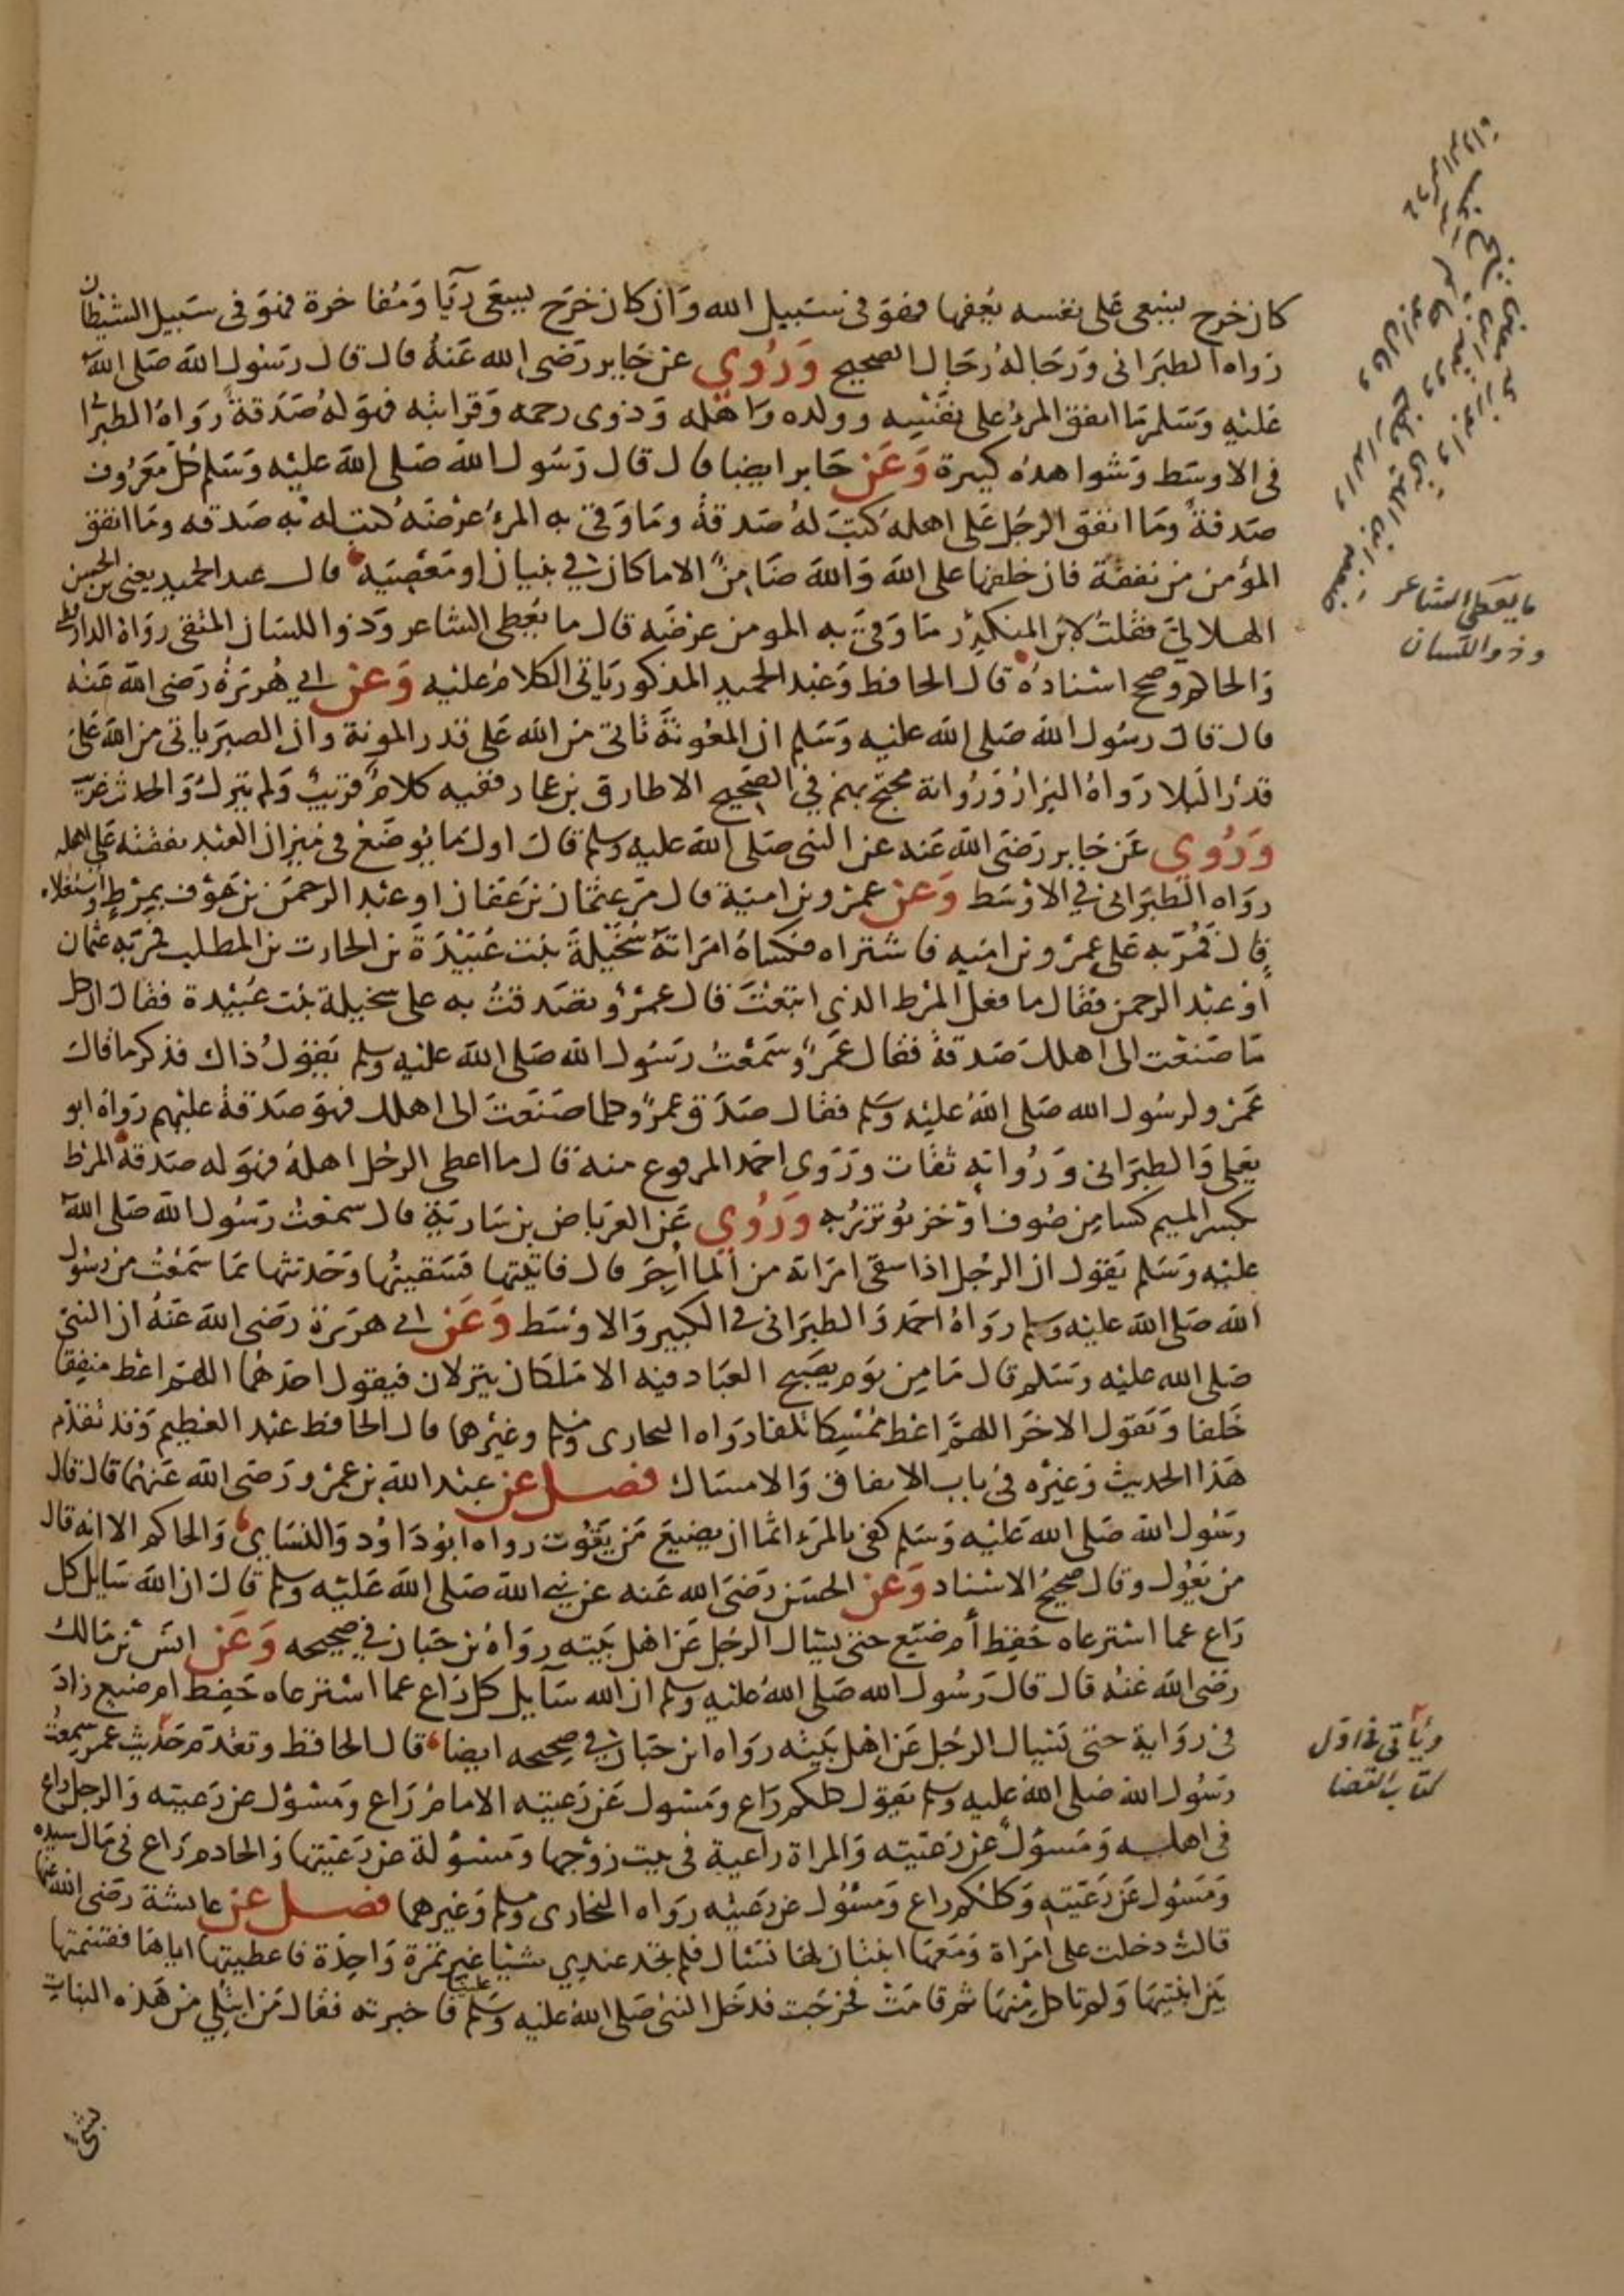 كان خرج ليسعى على نفسه يعفها فهو فى سبيل الله وان كان خرج ليسعى ريا ومفاخرة فهو فى سبيل الشيطان
رواه الطبرانى ورجاله رجال الصحيح وروي عن جابر رضى الله عنه قال قال رسول الله صلى الله
عليه وسلم ما انفق المرء على نفسه وولده واهله وذوى رحمه وقرابته فهو له صدقة رواه الطبرانى
فى الاوسط وشواهده كبيرة وعن جابر ايضا قال قال رسول الله صلى الله عليه وسلم كل معروف
صدقة وما انفق الرجل على اهله كتب له صدقة وما وقى به المرء عرضه كتب له به صدقه وما انفق
المؤمن من نفقة فان خلفها على الله والله ضامن الا ما كان في بنيان او معصيه قال عبد الحميد يعنى بن الحسن
الهلالي فقلت لابن المنكدر ما وقى به المومن عرضه قال ما يعطى الشاعر وذو اللسان المتقى رواه الدارقطنى
والحاكم وصحح اسناده قال الحافظ وعبد الحميد المذكور ياتى الكلام عليه وعن ابي هريرة رضى الله عنه
قال قال رسول الله صلى الله عليه وسلم ان المعونة تاتى من الله على قدر المونة وان الصبر ياتى من الله على
قدر البلا رواه البزار ورواته محتج بهم في الصحيح الا طارق بن عمار ففيه كلام قريب ولم يترك والحديث غريب
وروي عن جابر رضى الله عنه عن النبى صلى الله عليه وسلم قال اول ما يوضع فى ميزان العبد نفقته على اهله
رواه الطبرانى في الاوسط وعن عمرو بن امية قال مر عثمان بن عفان او عبد الرحمن بن عوف بمرط واستغلاه
قال فمر به على عمرو بن اميه فاشتراه فكساه امراته سخيلة بنت عبيدة بن الحارث بن المطلب فمر به عثمان
او عبد الرحمن فقال ما فعل المرط الذى ابتعت قال عمرو تصدقت به على سخيلة بنت عبيدة فقال ان كل
ما صنعت الى اهلك صدقة فقال عمرو سمعت رسول الله صلى الله عليه وسلم يقول ذاك فذكر ما قال
عمرو لرسول الله صلى الله عليه وسلم فقال صدق عمرو كلما صنعت الى اهلك فهو صدقة عليهم رواه ابو
يعلى والطبرانى ورواته ثقات وروى احمد المرفوع منه قال ما اعطى الرجل اهله فهو له صدقة المرط
بكسر الميم كسا من صوف او خز يوتزر به وروي عن العرباض بن سارية قال سمعت رسول الله صلى الله
عليه وسلم يقول ان الرجل اذا سقى امراته من الما اجر قال فاتيتها فسقيتها وحدثتها بما سمعت من رسول
الله صلى الله عليه وسلم رواه احمد والطبرانى في الكبير والاوسط وعن ابي هريرة رضى الله عنه ان النبى
صلى الله عليه وسلم قال ما من يوم يصبح العباد فيه الا ملكان ينزلان فيقول احدهما اللهم اعط منفقا
خلفا ويقول الاخر اللهم اعط ممسكا تلفا رواه البخارى ومسلم وغيرهما قال الحافظ عبد العظيم وقد تقدم
هذا الحديث وغيره فى باب الانفاق والامساك فصل عن عبد الله بن عمرو رضى الله عنهما قال قال
رسول الله صلى الله عليه وسلم كفى بالمرء اثما ان يضيع من يقوت رواه ابو داود والنسايى والحاكم الا انه قال
من يعول وقال صحيح الاسناد وعن الحسن رضى الله عنه عن نبي الله صلى الله عليه وسلم قال ان الله سايل كل
راع عما استرعاه حفظ أم ضيع حتى يسال الرجل عن اهل بيته رواه بن حبان في صحيحه وعن انس بن مالك
رضى الله عنه قال قال رسول الله صلى الله عليه وسلم ان الله سآيل كل راع عما استرعاه حفظ ام ضيع زاد
فى رواية حتى يسال الرجل عن اهل بيته رواه ابن حبان في صحيحه ايضا قال الحافظ وتقدم حديث عمر سمعت
رسول الله صلى الله عليه وسلم يقول كلكم راع ومسول عن رعيته الامام راع ومسؤل عن رعيته والرجل راع
فى اهله ومسؤل عن رعيته والمراة راعية فى بيت زوجها ومسؤلة عن رعيتها والخادم راع فى مال سيده
ومسؤل عن رعيته وكلكم راع ومسؤل عن رعيته رواه البخارى ومسلم وغيرهما فصل عن عايشة رضى الله عنها
قالت دخلت على امراة ومعها ابنتان لها تسال فلم تجد عندي شيئا غير تمرة واحدة فاعطيتها اياها فقسمتها
بين ابنتيها ولم تاكل منها ثم قامت فخرجت فدخل النبى صلى الله عليه وسلم علينا فاخبرته فقال من ابتلي من هذه البنات
بشئ
ما يعطى الشاعر
وذو اللسان
ويأتى فى اول
كتاب القضا